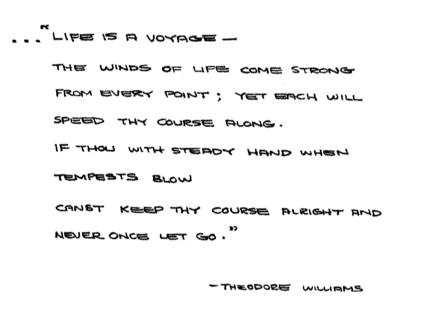 ..."LIFE IS A VOYAGE —
THE WINDS OF LIFE COME STRONG
FROM EVERY POINT; YET EACH WILL
SPEED THY COURSE ALONG.
IF THOU WITH STEADY HAND WHEN
TEMPESTS BLOW
CANST KEEP THY COURSE ALRIGHT AND
NEVER ONCE LET GO."
—THEODORE WILLIAMS